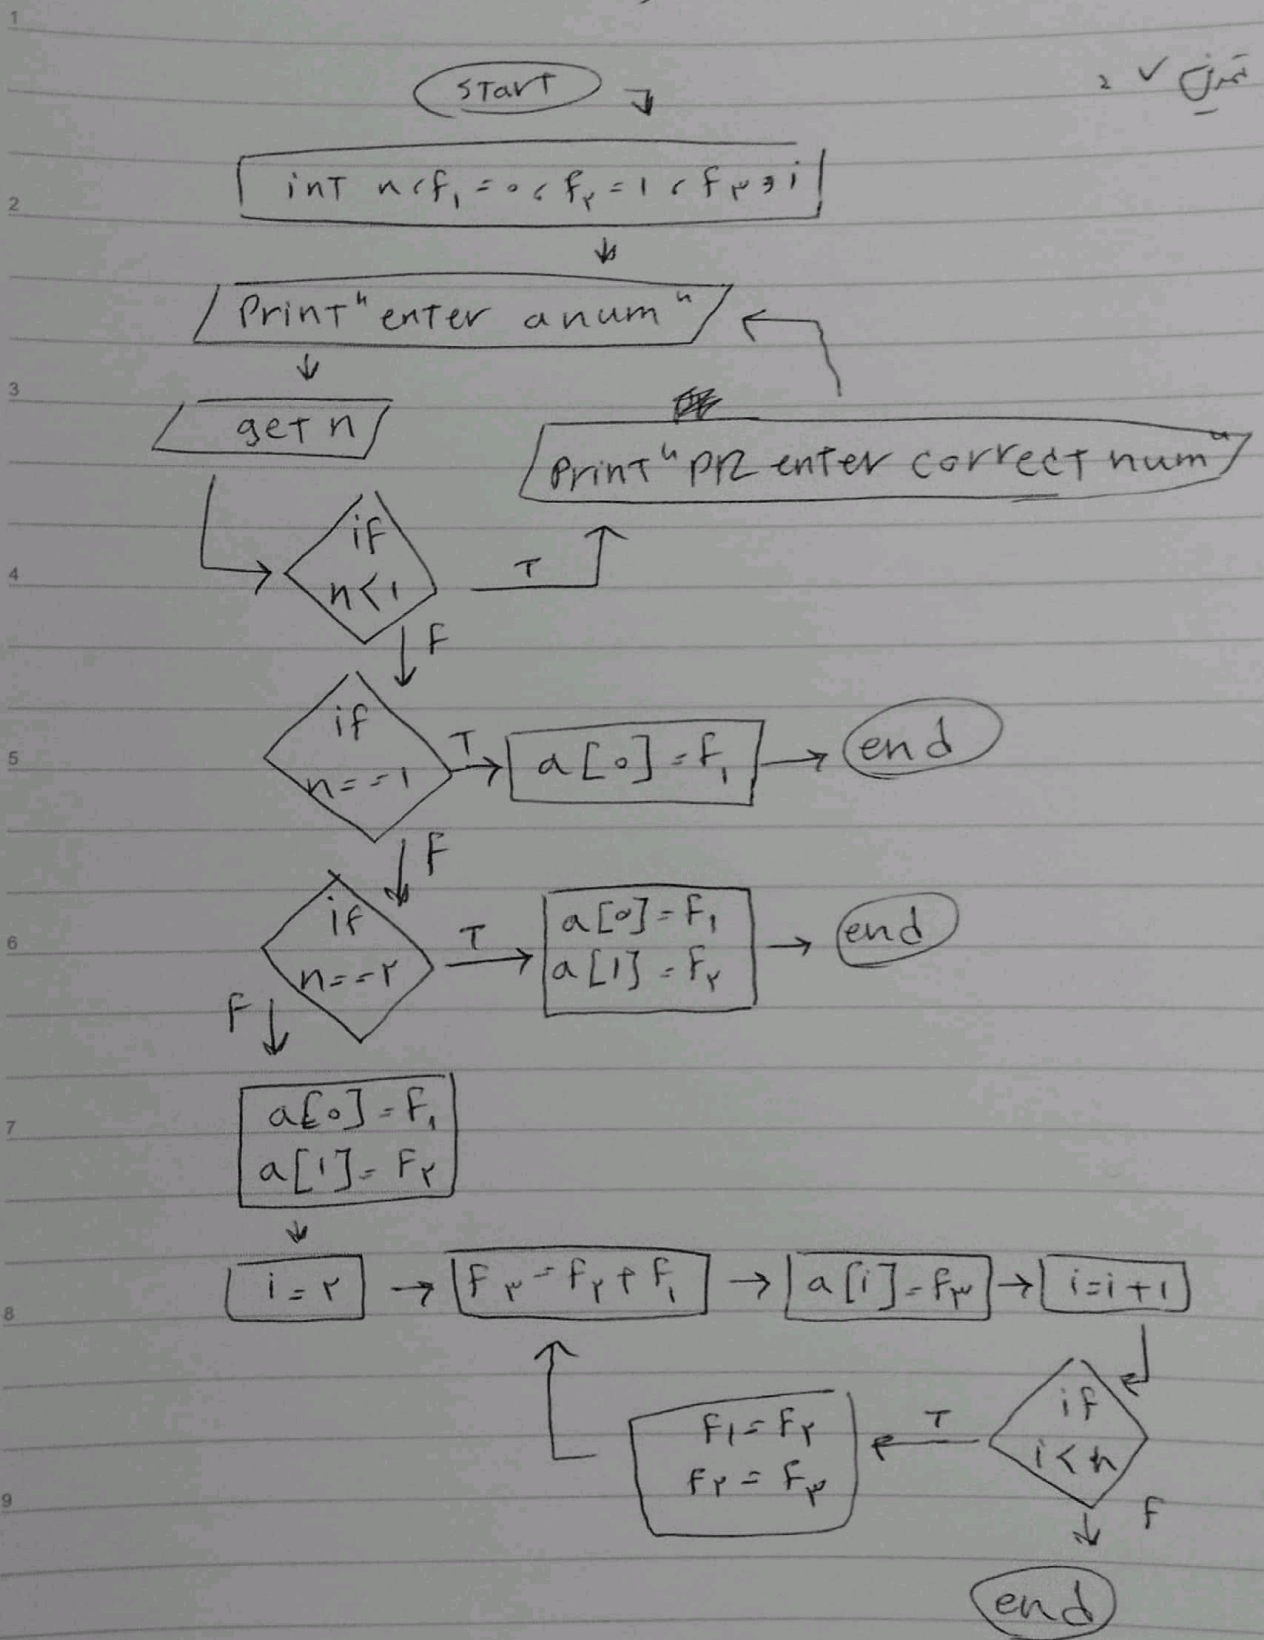 تمرین ✓ 2
START
int n، f۱ = ۰، f۲ = ۱، f۳، i
Print "enter a num"
get n
Print "plz enter correct num"
if
n<۱
T
F
if
n==۱
T
a[۰]=F۱
end
F
if
n==۲
T
a[۰]=F۱
a[۱]=F۲
end
F
a[۰]=F۱
a[۱]=F۲
i=۲
F۳=F۲+F۱
a[i]=F۳
i=i+۱
if
i<n
T
F۱=F۲
F۲=F۳
F
end
1
2
3
4
5
6
7
8
9